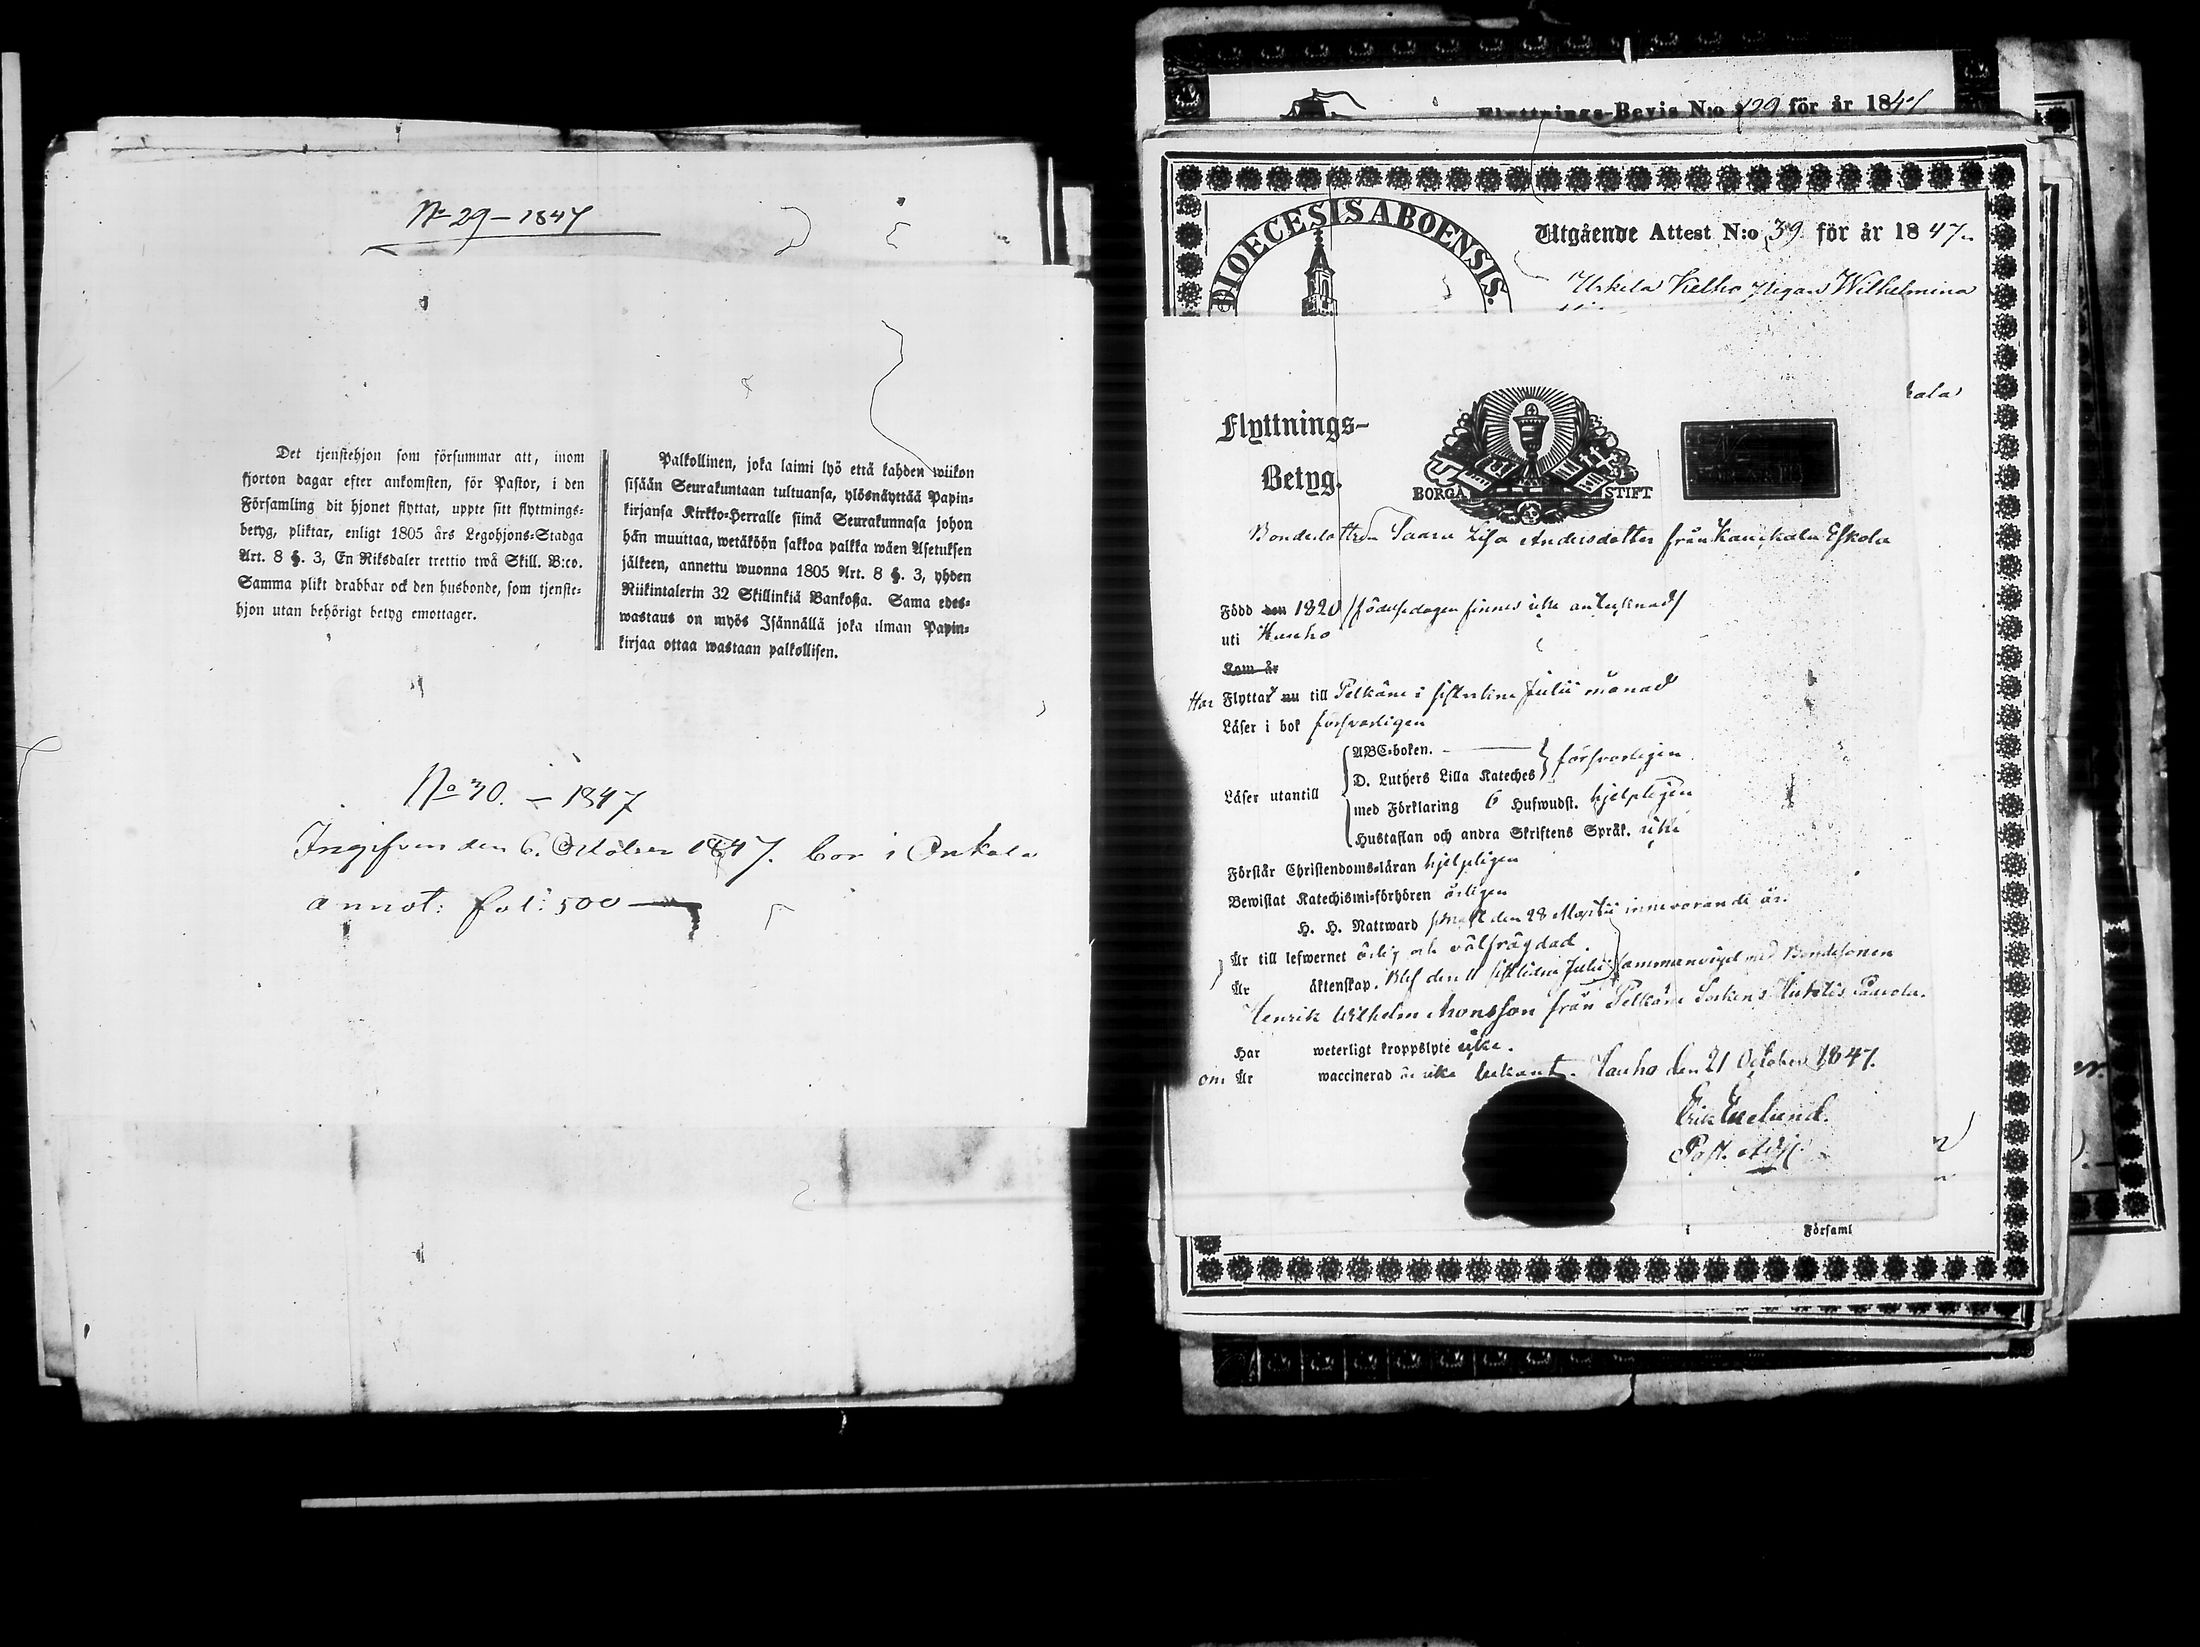 No 29 - 1847
Det tjenstehjon som försummar att, inom
fjorton dagar efter ankomsten, för Pastor, i den
Församling dit hjonet flyttat, uppte sitt flyttnings-
betyg, pliktar, enligt 1805 års Legohjons-Stadga
Art. 8 §. 3, En Riksdaler trettio twå Skill. B:co.
Samma plikt drabbar ock den husbonde, som tjenste-
hjon utan behörigt betyg emottager.
Palkollinen, joka laimi lyö että kahden wiikon
sisään Seurakuntaan tultuansa, ylösnäyttää Papin-
kirjansa Kirkko-Herralle siinä Seurakunnasa johon
hän muuttaa, wetäköön sakkoa palkka wäen Asetuksen
jälkeen, annettu wuonna 1805 Art. 8 §. 3, yhden
Riikintalerin 32 Skillinkiä Bankoßa. Sama edes-
wastaus on myös Isännällä joka ilman Papin-
kirjaa ottaa wastaan palkollisen.
No 30. - 1847
Ingifven den 6. October 1847. bor i Onkala
annot: fol: 500
Flyttnings-Bevis N:o 129 för år 1847
DIOECESIS ABOENSIS.
Utgående Attest N:o 39 för år 1847.
Pigan Wilhelmina
kala
Flyttnings-
Betyg.
BORGÅ STIFT
Bondedottren Saara Lisa Andersdotter från Eskola
Född den 1820 (födelsedagen finnes icke antecknad)
uti Hauho
Kom år
Har Flyttat nu till Pelkäne i sistledne Julii månad
Läser i bok försvarligen
Läser utantill
ABC-boken.
D. Luthers Lilla Kateches } försvarligen
med Förklaring 6 Hufwudst. hjelpligen
Hustaflan och andra Skriftens Språk. icke
Förstår Christendoms-läran hjelpligen
Bewistat Katechismi-förhören årligen
H. H. Nattward senast den 28 Martii innevarande år.
Är till lefwernet ärlig och välfrägdad.
Är äktenskap. Blef den 11 sistledne Julii sammanvigd med Bondesonen
Henrik Wilhelm Aronsson från Pelkäne Sockens
Har weterligt kroppslyte icke.
om Är waccinerad är icke bekant. Hauho den 21 October 1847.
Erik
Past. Adj.
i Församl